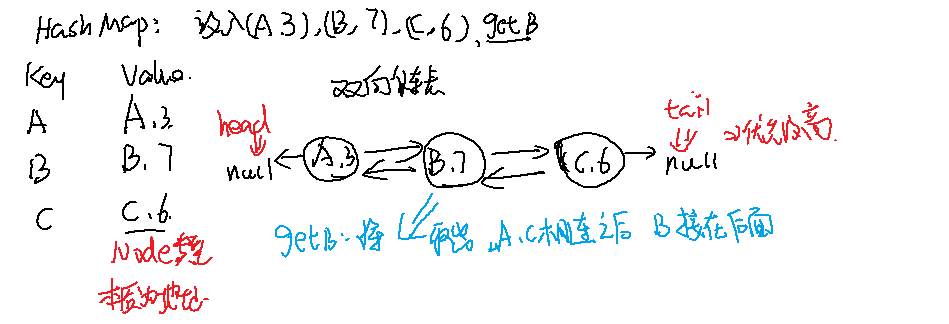 HashMap: 设入(A.3),(B,7),(C,6), getB
Key Value.
A A.3
B B.7
C C.6.
Node类型
本质为地址
双向链表
head
null A.3 B.7 C.6 null
tail
优先级高
getB:将 取出, A、C相连之后 B接在后面